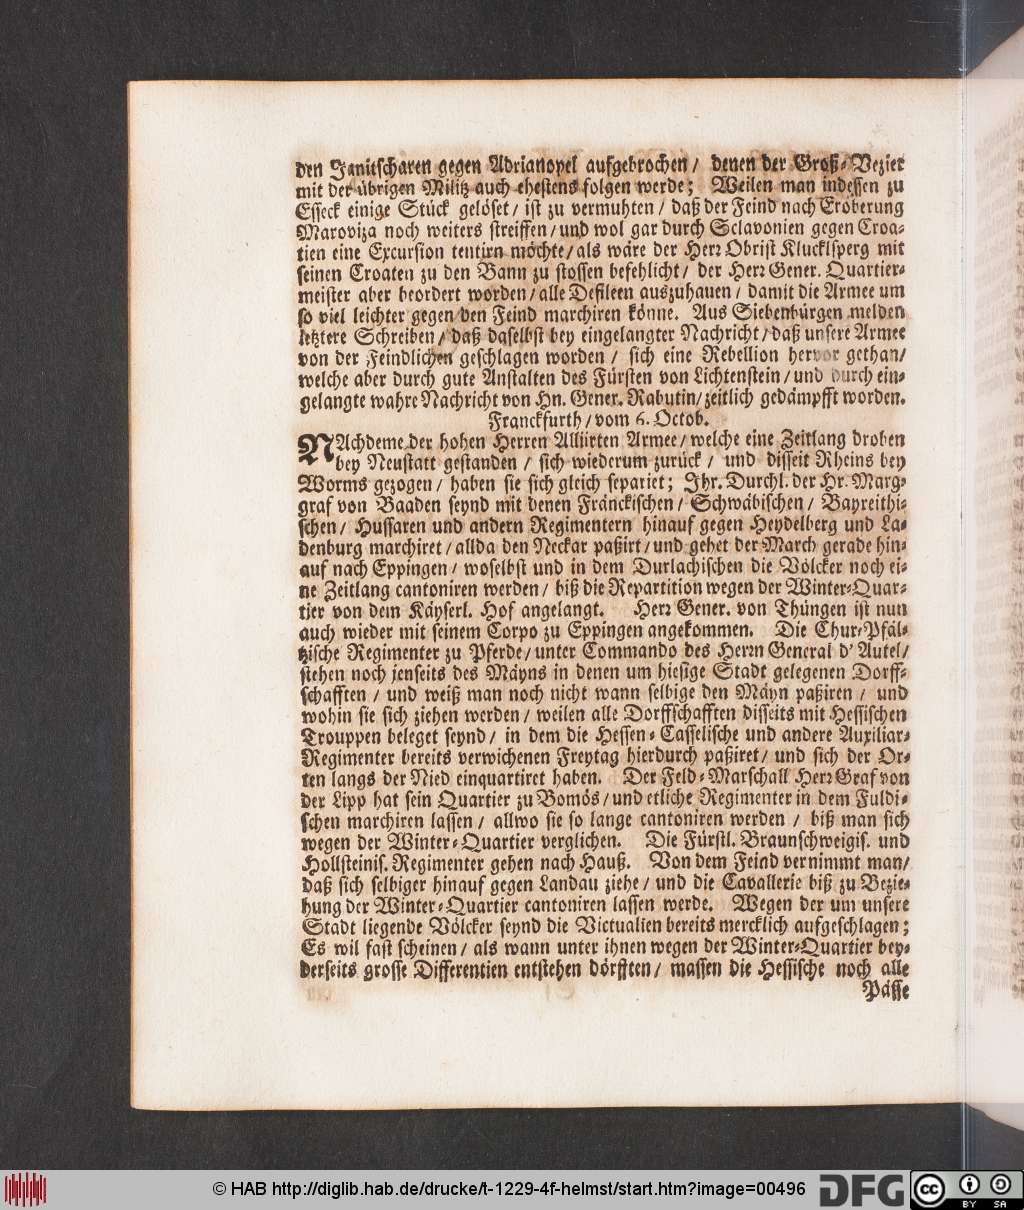 den Janitscharen gegen Adrianopel aufgebrochen / denen der Groß-Vezier
mit der übrigen Militz auch ehestens folgen werde; Weilen man indessen zu
Esseck einige Stück gelöset / ist zu vermuhten / daß der Feind nach Eroberung
Maroviza noch weiters streiffen / und wol gar durch Sclavonien gegen Croa-
tien eine Excursion tentirn möchte / als wäre der Herr Obrist Klucklsperg mit
seinen Croaten zu den Bann zu stossen befehlicht / der Herr Gener. Quartier-
meister aber beordert worden / alle Defileen auszuhauen / damit die Armee um
so viel leichter gegen den Feind marchiren könne. Aus Siebenbürgen melden
letztere Schreiben / daß daselbst bey eingelangter Nachricht / daß unsere Armee
von der Feindlichen geschlagen worden / sich eine Rebellion hervor gethan /
welche aber durch gute Anstalten des Fürsten von Lichtenstein / und durch ein-
gelangte wahre Nachricht von Hn. Gener. Rabutin / zeitlich gedämpfft worden.
Franckfurth / vom 6. Octob.
NAchdeme der hohen Herren Alliirten Armee / welche eine Zeitlang droben
bey Neustatt gestanden / sich wiederum zurück / und disseit Rheins bey
Worms gezogen / haben sie sich gleich separiet; Ihr. Durchl. der Hr. Marg-
graf von Baaden seynd mit denen Fränckischen / Schwäbischen / Bayreithi-
schen / Hussaren und andern Regimentern hinauf gegen Heydelberg und La-
denburg marchiret / allda den Neckar paßirt / und gehet der March gerade hin-
auf nach Eppingen / woselbst und in dem Durlachischen die Völcker noch ei-
ne Zeitlang cantoniren werden / biß die Repartition wegen der Winter-Quar-
tier von dem Käyserl. Hof angelangt. Herr Gener. von Thüngen ist nun
auch wieder mit seinem Corpo zu Eppingen angekommen. Die Chur-Pfäl-
tzische Regimenter zu Pferde / unter Commando des Herrn General d' Autel /
stehen noch jenseits des Mäyns in denen um hiesige Stadt gelegenen Dorff-
schafften / und weiß man noch nicht wann selbige den Mäyn paßiren / und
wohin sie sich ziehen werden / weilen alle Dorffschafften disseits mit Hessischen
Trouppen beleget seynd / in dem die Hessen-Casselische und andere Auxiliar-
Regimenter bereits verwichenen Freytag hierdurch paßiret / und sich der Or-
ten langs der Nied einquartiret haben. Der Feld-Marschall Herr Graf von
der Lipp hat sein Quartier zu Bomös / und etliche Regimenter in dem Fuldi-
schen marchiren lassen / allwo sie so lange cantoniren werden / biß man sich
wegen der Winter-Quartier verglichen. Die Fürstl. Braunschweigis. und
Hollsteinis. Regimenter gehen nach Hauß. Von dem Feind vernimmt man /
daß sich selbiger hinauf gegen Landau ziehe / und die Cavallerie biß zu Bezie-
hung der Winter-Quartier cantoniren lassen werde. Wegen der um unsere
Stadt liegende Völcker seynd die Victualien bereits mercklich aufgeschlagen;
Es wil fast scheinen / als wann unter ihnen wegen der Winter-Quartier bey-
derseits grosse Differentien entstehen dörfften / massen die Hessische noch alle
Pässe
© HAB http://diglib.hab.de/drucke/t-1229-4f-helmst/start.htm?image=00496
DFG
cc BY SA